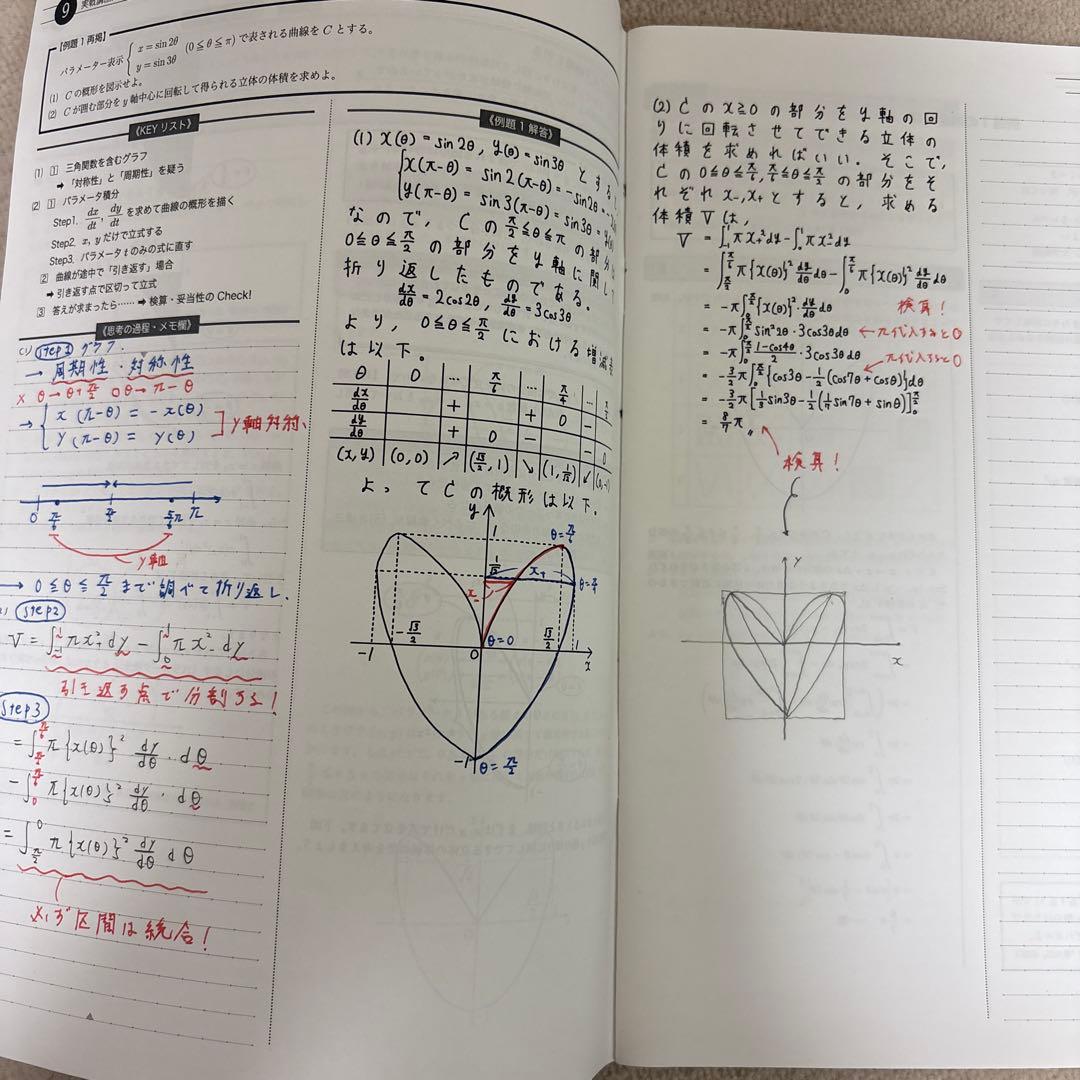 9 実戦講座
【例題1再掲】
パラメーター表示 { x = sin 2θ
y = sin 3θ (0 ≦ θ ≦ π) で表される曲線を C とする。
(1) C の概形を図示せよ。
(2) C が囲む部分を y 軸中心に回転して得られる立体の体積を求めよ。
《KEY リスト》
(1) 1 三角関数を含むグラフ
➡「対称性」と「周期性」を疑う
(2) 1 パラメータ積分
Step1. dx/dt, dy/dt を求めて曲線の概形を描く
Step2. x, y だけで立式する
Step3. パラメータ t のみの式に直す
2 曲線が途中で「引き返す」場合
➡引き返す点で区切って立式
3 答えが求まったら…… ➡ 検算・妥当性の Check!
《思考の過程・メモ欄》
(1) Step1 グラフ.
→ 周期性・対称性
× θ→θ+π/2 ○θ→π-θ
→ { x(π-θ) = -x(θ)
y(π-θ) = y(θ) ] y軸対称、
0 π/6 π/2 5/6π π
y軸
→ 0≦θ≦π/2 まで調べて折り返し.
Step2
V = ∫_{-1}^{1} πx₊² dy - ∫_0^1 πx₋² dy
引き返す点で分割する!
Step3
= ∫_{π/2}^{π/6} π{x(θ)}² dy/dθ · dθ
- ∫_0^{π/6} π{x(θ)}² dy/dθ · dθ
= ∫_{π/2}^0 π{x(θ)}² dy/dθ dθ
必ず区間は統合!
《例題1解答》
(1) x(θ) = sin2θ, y(θ) = sin3θ とする
{ x(π-θ) = sin2(π-θ) = -sin2θ =
y(π-θ) = sin3(π-θ) = sin3θ =
なので, Cの π/2≦θ≦π の部分は
0≦θ≦π/2 の部分をy軸に関して
折り返したものである。
dx/dθ = 2cos2θ, dy/dθ = 3cos3θ
より, 0≦θ≦π/2 における増減表
は以下。
θ 0 … π/6 … π/4 … π/2
dx/dθ + + 0 -
dy/dθ + 0 - - 0
(x,y) (0,0) ↗ (√3/2, 1) ↘ (1, 1/√2) ↙ (0,-1)
よってCの概形は以下。
y
1
θ=π/6
1/√2
x₊
x₋
θ=π/4
-1 -√3/2 0 θ=0 √3/2 1 x
-1 θ=π/2
(2) Cのx≧0の部分をy軸の回
りに回転させてできる立体の
体積を求めればいい. そこで,
Cの0≦θ≦π/6, π/6≦θ≦π/2の部分をそ
れぞれx₋, x₊とすると, 求める
体積Vは,
V = ∫_{-1}^1 πx₊²dy - ∫_0^1 πx₋²dy
= ∫_{π/2}^{π/6} π{x(θ)}² dy/dθ dθ - ∫_0^{π/6} π{x(θ)}² dy/dθ dθ
= -π∫_0^{π/2} {x(θ)}² · dy/dθ dθ 検算!
= -π∫_0^{π/2} sin²2θ · 3cos3θdθ ← π代入すると0
= -π∫_0^{π/2} (1-cos4θ)/2 · 3cos3θdθ π代入すると0
= -3/2π∫_0^{π/2} {cos3θ - 1/2(cos7θ + cosθ)}dθ
= -3/2π[1/3 sin3θ - 1/2(1/7 sin7θ + sinθ)]_0^{π/2}
= 8/7π 〃
検算!
y
x